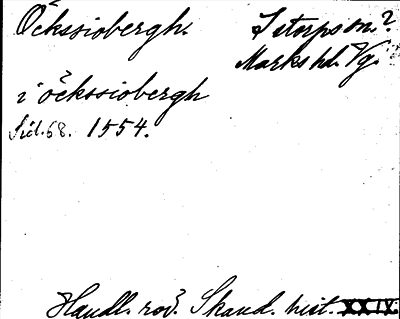 Öckssiobergh. Istorps sn.?
Marks hd. Vg.
i öckssiobergh
Sid. 68. 1554.
Handl. rör. Skand. hist. XXIX.